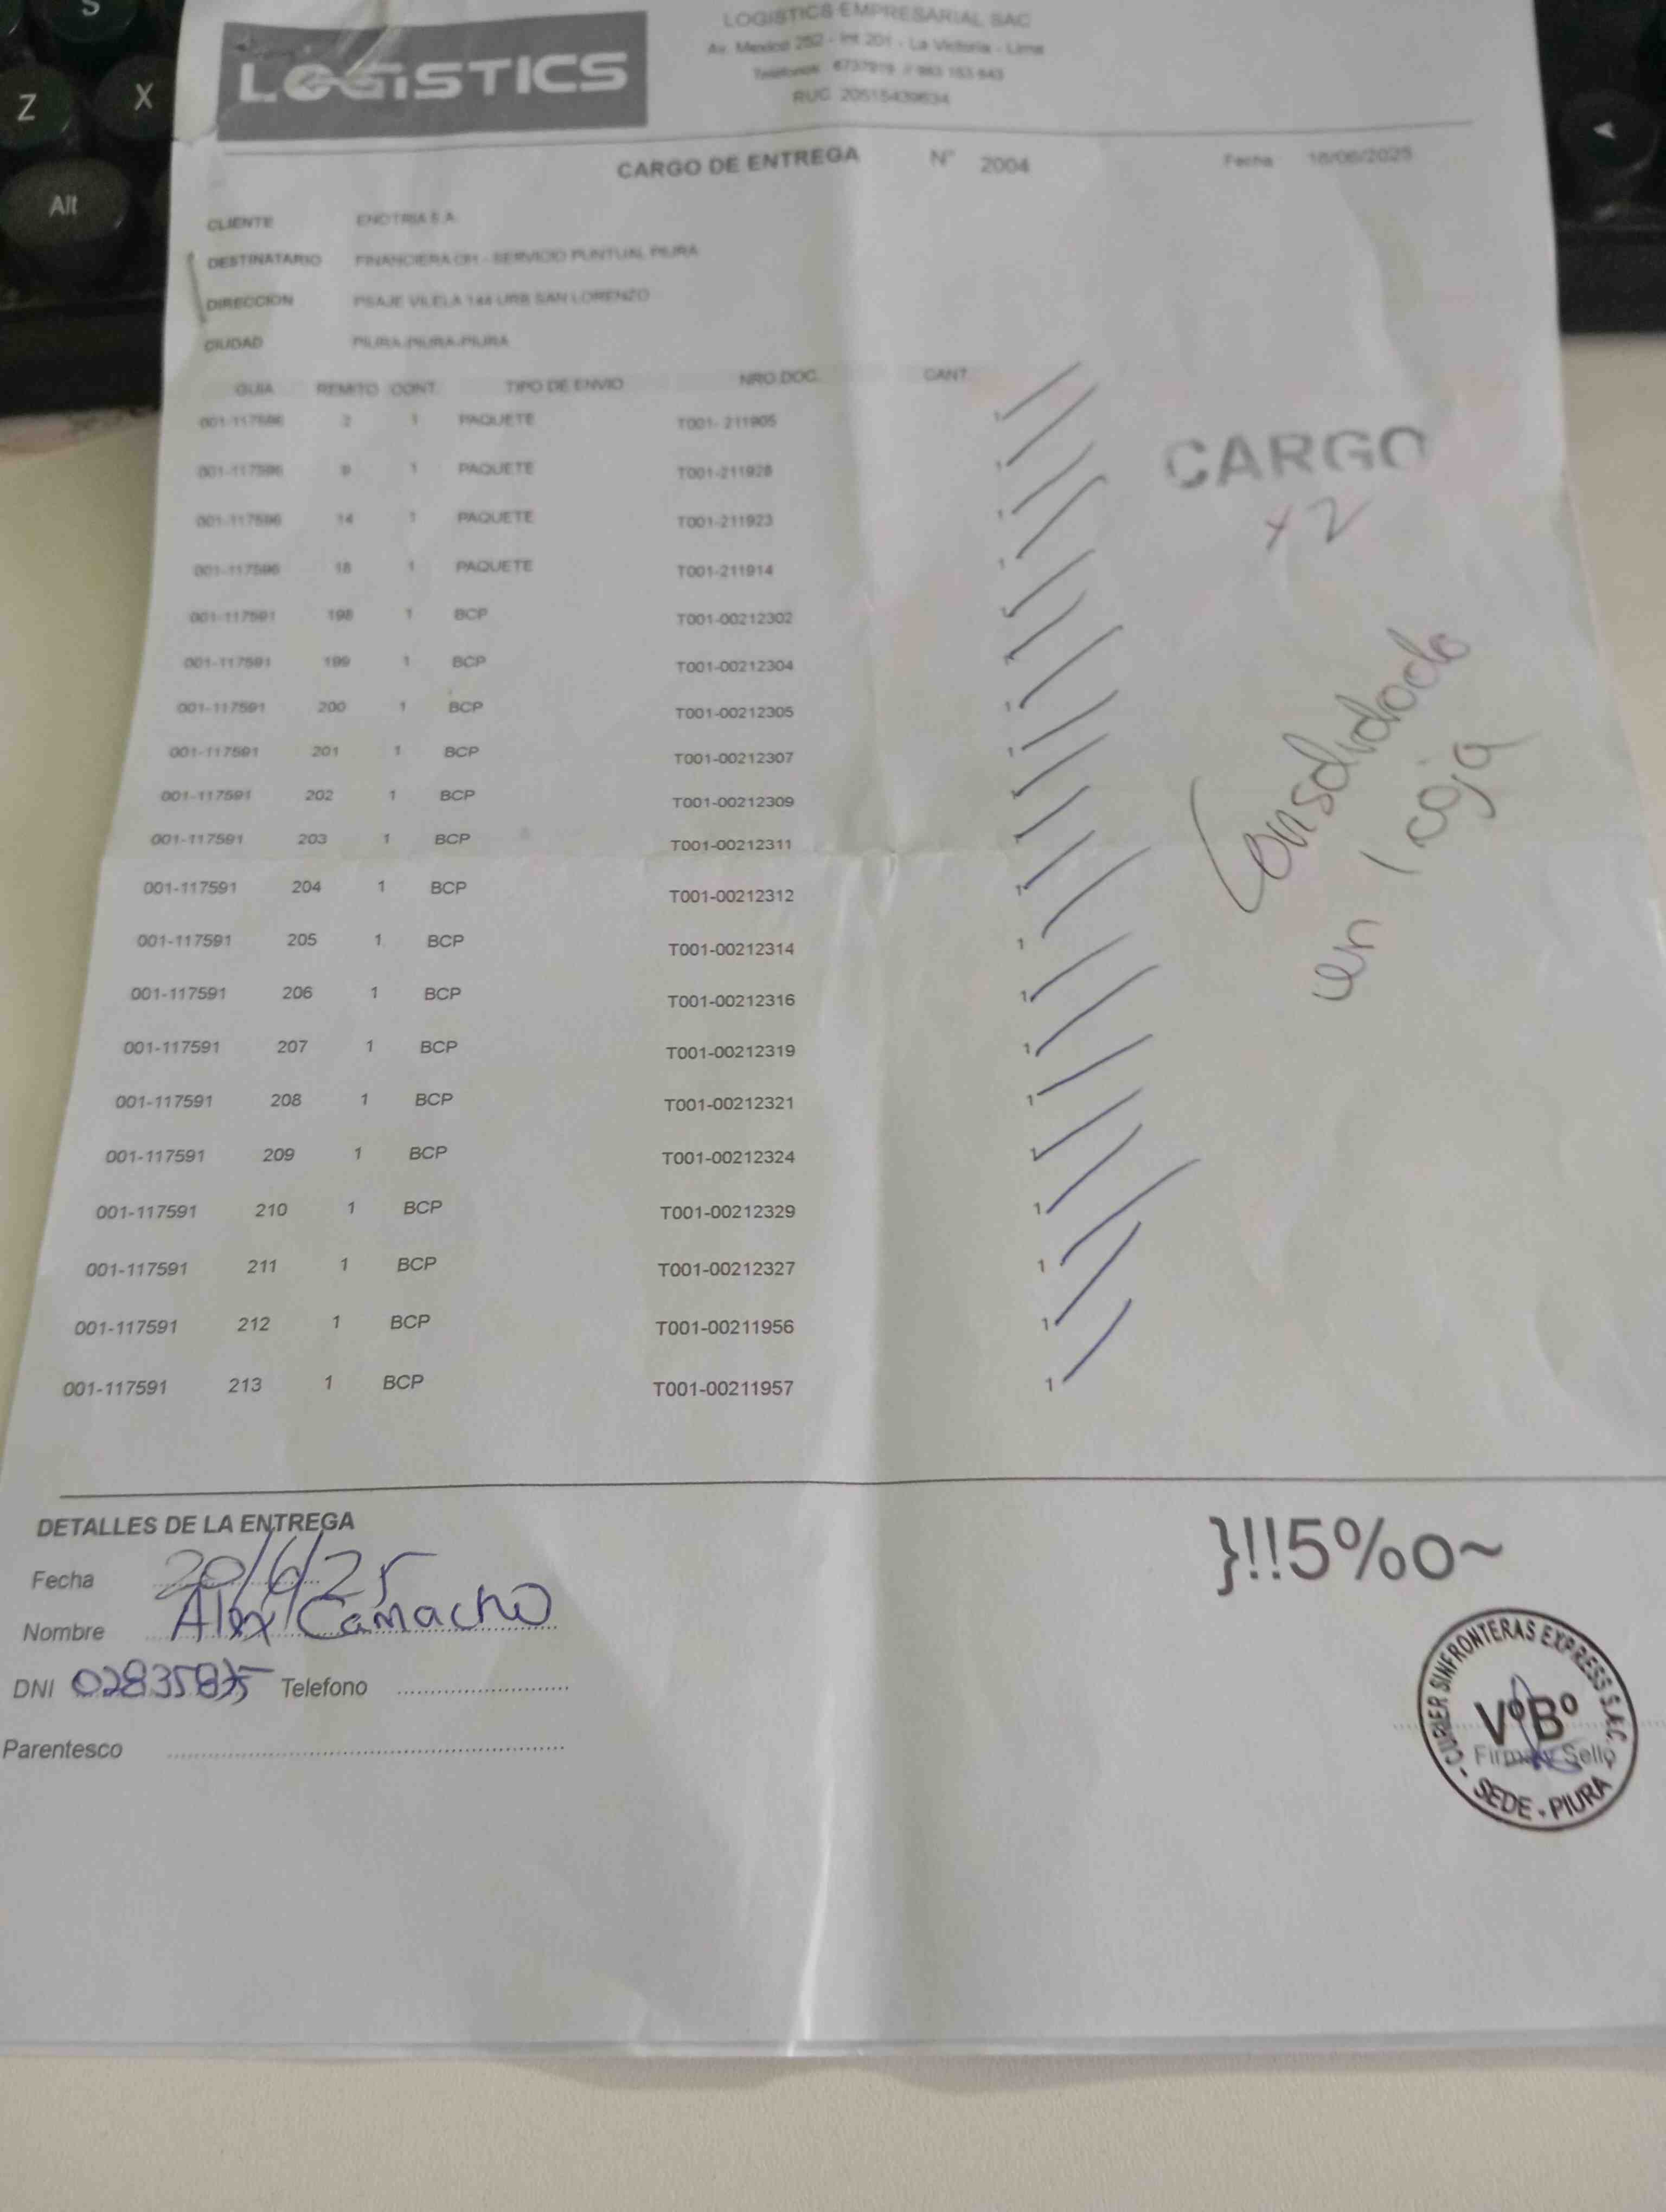 S
Z
X
Alt
LOGISTICS
LOGISTICS EMPRESARIAL SAC
Av. Mexico 252 - Int 201 - La Victoria - Lima
Telefonos
RUC
CARGO DE ENTREGA N° 2004 Fecha 18/06/2025
CLIENTE ENOTRIA S.A.
DESTINATARIO FINANCIERA OH - SERVICIO PUNTUAL PIURA
DIRECCION PSAJE VILELA 144 URB SAN LORENZO
CIUDAD PIURA-PIURA-PIURA
GUIA REMITO CONT. TIPO DE ENVIO NRO.DOC. CANT
001-117596 2 1 PAQUETE T001- 211905 1
001-117596 1 PAQUETE T001-211928 1
001-117596 14 1 PAQUETE T001-211923 1
001-117596 18 1 PAQUETE T001-211914 1
001-117591 198 1 BCP T001-00212302 1
001-117591 199 1 BCP T001-00212304 1
001-117591 200 1 BCP T001-00212305 1
001-117591 201 1 BCP T001-00212307 1
001-117591 202 1 BCP T001-00212309 1
001-117591 203 1 BCP T001-00212311 1
001-117591 204 1 BCP T001-00212312 1
001-117591 205 1 BCP T001-00212314 1
001-117591 206 1 BCP T001-00212316 1
001-117591 207 1 BCP T001-00212319 1
001-117591 208 1 BCP T001-00212321 1
001-117591 209 1 BCP T001-00212324 1
001-117591 210 1 BCP T001-00212329 1
001-117591 211 1 BCP T001-00212327 1
001-117591 212 1 BCP T001-00211956 1
001-117591 213 1 BCP T001-00211957 1
CARGO
x2
Consolidado
en 1 caja
DETALLES DE LA ENTREGA
Fecha 20/6/25
Nombre Alex Camacho
DNI 02835875 Telefono
Parentesco
}!!5%o~
CURIER SINFRONTERAS EXPRESS S.A.C.
V°B°
Firma y Sello
- SEDE - PIURA -